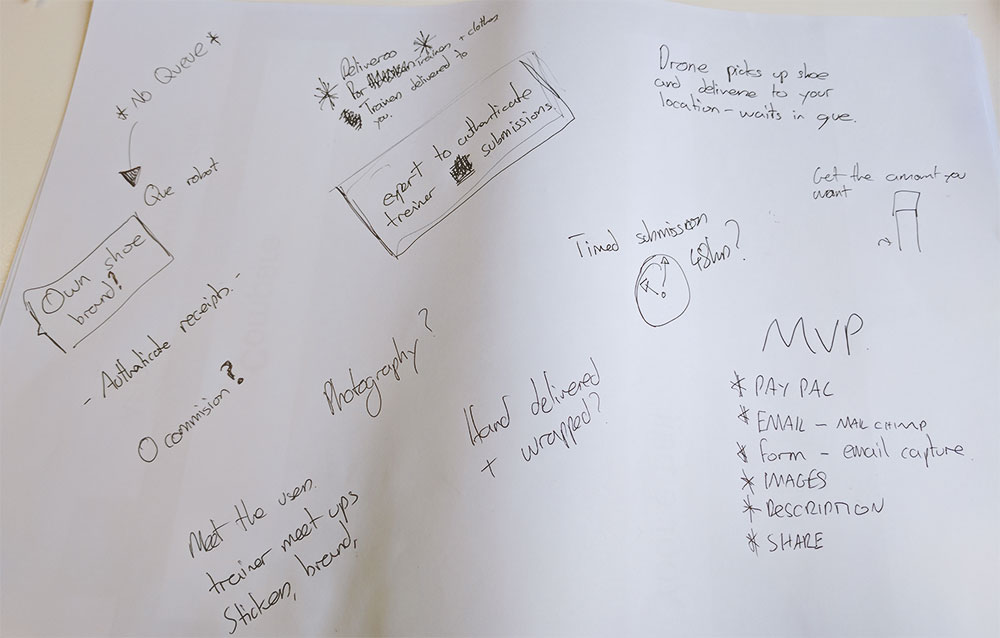 * No Queue *
Que robot
Own shoe
brand?
- Authaticate receipts. -
O commision?
* Deliveroo *
For trainers + clothes
Trainers delivered to
you.
expert to authenticate
trainer submissions.
Drone picks up shoe
and delivers to your
location - waits in que.
Get the amount you
want
Timed submission
48hrs?
Photography?
Hand delivered
+ wrapped?
Meet the user.
trainer meet ups
Stickers, brand,
MVP.
* PAYPAL
* EMAIL - MAIL CHIMP
* Form - email capture
* IMAGES
* DESCRIPTION
* SHARE